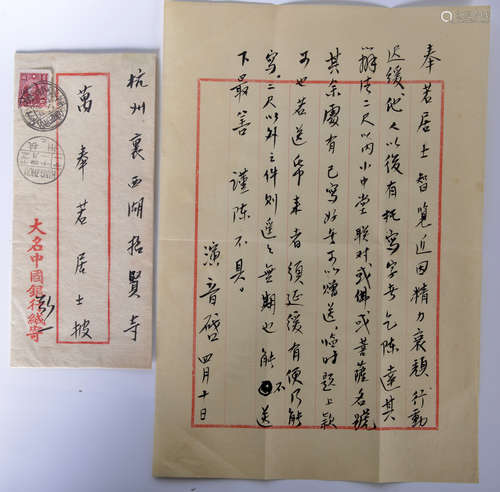 奉若居士智覽近因精力衰頹行動
遲緩他人以後有托寫字者乞陳達其
辦法二尺以內小中堂联对或佛或菩薩名號
其余處有已寫好者可以贈送臨时题上款
可也若送帋来者須延緩有便乃能
寫二尺以外之件則遥遥無期也能不送
下最善 謹陳不具。
演音啓 四月十日
杭州裏西湖招賢寺
萬奉若居士披
大名中國銀行緘寄